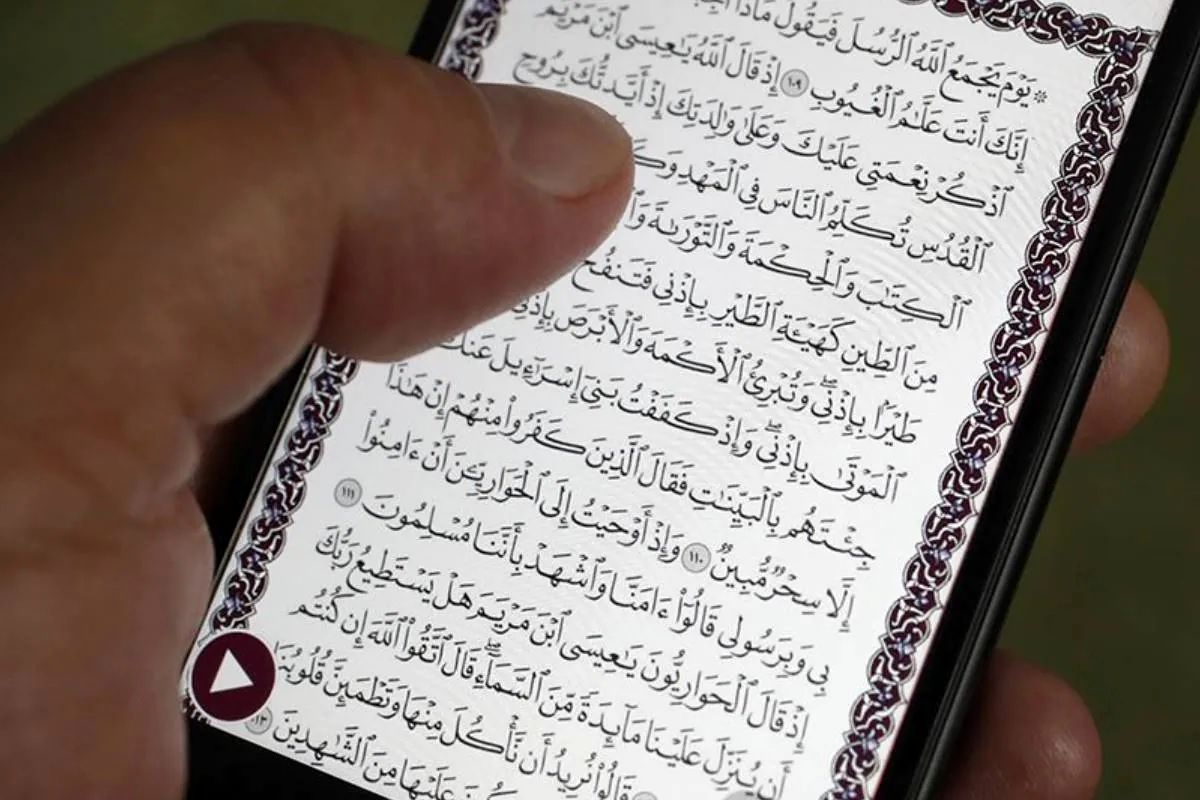 ۞ يَوْمَ يَجْمَعُ ٱللَّهُ ٱلرُّسُلَ فَيَقُولُ مَاذَآ
إِنَّكَ أَنتَ عَلَّٰمُ ٱلْغُيُوبِ ١٠٩ إِذْ قَالَ ٱللَّهُ يَٰعِيسَى ٱبْنَ مَرْيَمَ
ٱذْكُرْ نِعْمَتِى عَلَيْكَ وَعَلَىٰ وَٰلِدَتِكَ إِذْ أَيَّدتُّكَ بِرُوحِ
ٱلْقُدُسِ تُكَلِّمُ ٱلنَّاسَ فِى ٱلْمَهْدِ
ٱلْكِتَٰبَ وَٱلْحِكْمَةَ وَٱلتَّوْرَىٰةَ
مِنَ ٱلطِّينِ كَهَيْـَٔةِ ٱلطَّيْرِ بِإِذْنِى فَتَنفُخُ
طَيْرًۢا بِإِذْنِى ۖ وَتُبْرِئُ ٱلْأَكْمَهَ وَٱلْأَبْرَصَ بِإِذْنِى
ٱلْمَوْتَىٰ بِإِذْنِى ۖ وَإِذْ كَفَفْتُ بَنِىٓ إِسْرَٰٓءِيلَ عَنكَ
جِئْتَهُم بِٱلْبَيِّنَٰتِ فَقَالَ ٱلَّذِينَ كَفَرُوا۟ مِنْهُمْ إِنْ هَٰذَآ
إِلَّا سِحْرٌ مُّبِينٌ ١١٠ وَإِذْ أَوْحَيْتُ إِلَى ٱلْحَوَارِيِّـۧنَ أَنْ ءَامِنُوا۟
بِى وَبِرَسُولِى قَالُوٓا۟ ءَامَنَّا وَٱشْهَدْ بِأَنَّنَا مُسْلِمُونَ ١١١
إِذْ قَالَ ٱلْحَوَارِيُّونَ يَٰعِيسَى ٱبْنَ مَرْيَمَ هَلْ يَسْتَطِيعُ رَبُّكَ
أَن يُنَزِّلَ عَلَيْنَا مَآئِدَةً مِّنَ ٱلسَّمَآءِ ۖ قَالَ ٱتَّقُوا۟ ٱللَّهَ إِن كُنتُم
قَالُوا۟ نُرِيدُ أَن نَّأْكُلَ مِنْهَا وَتَطْمَئِنَّ قُلُوبُنَا
عَلَيْهَا مِنَ ٱلشَّٰهِدِينَ ١١٣